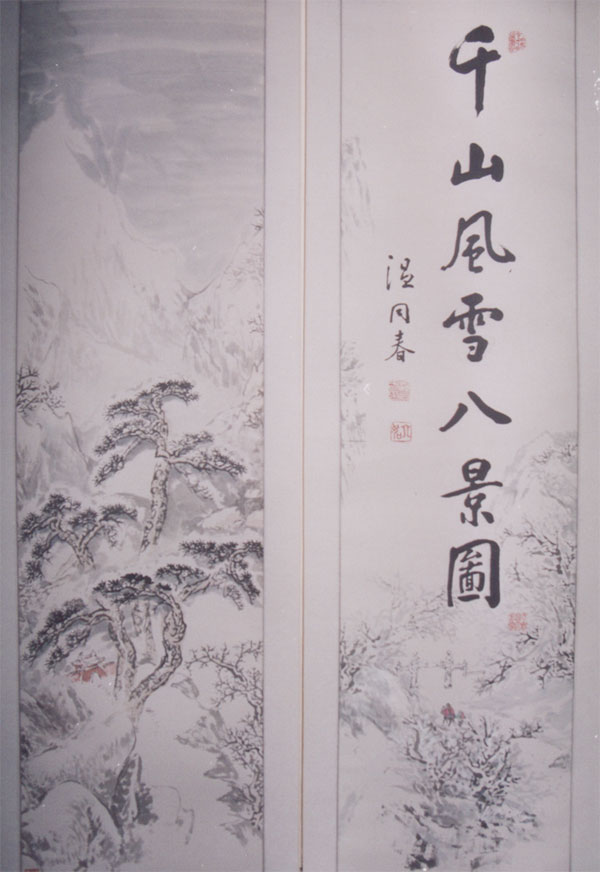 千山風雪八景圖
温同春